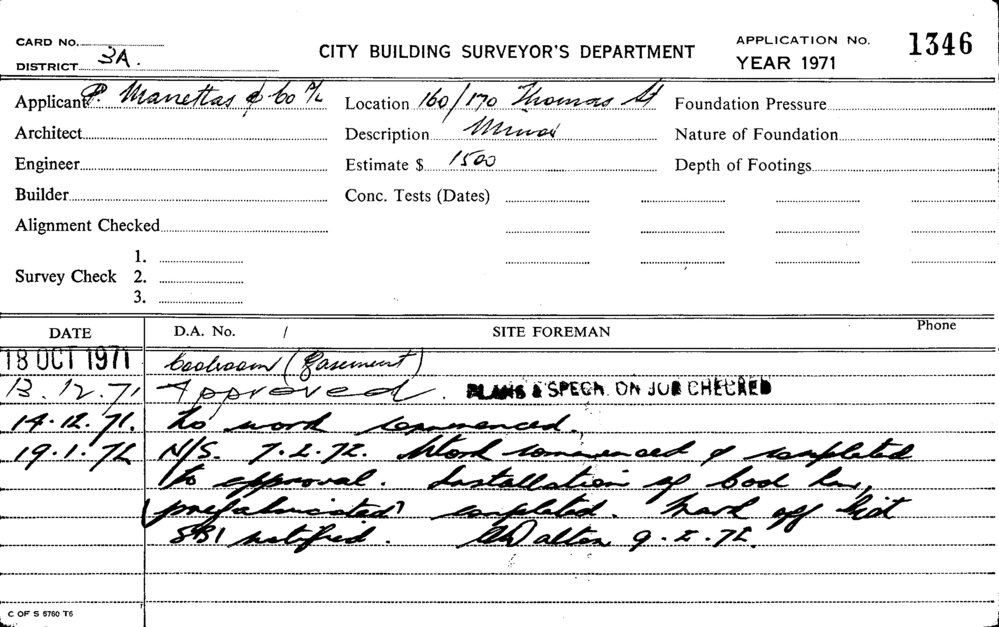 CARD No.
DISTRICT 3A.
CITY BUILDING SURVEYOR'S DEPARTMENT
APPLICATION No. 1346
YEAR 1971
Applicant P. Manettas & Co P/L
Location 160/170 Thomas St
Foundation Pressure
Architect
Description Minor
Nature of Foundation
Engineer
Estimate $ 1500
Depth of Footings
Builder
Conc. Tests (Dates)
Alignment Checked
Survey Check 1.
2.
3.
DATE D.A. No. / SITE FOREMAN Phone
18 OCT 1971 Coolroom (Basement)
13.12.71 Approved. PLANS & SPECN. ON JOB CHECKED
14.12.71. No work commenced.
19.1.72 N/S. 7.2.72. Work commenced & completed
to approval. Installation of cool
(prefabricated) completed. Mark off list
SBI notified. Dalton 9.2.72.
C OF S 5760 T6